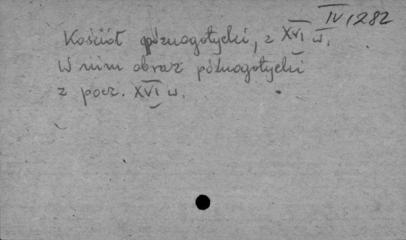 IV/282
Kościół późnogotycki, z XVI w.
W nim obraz późnogotycki
z pocz. XVI w.